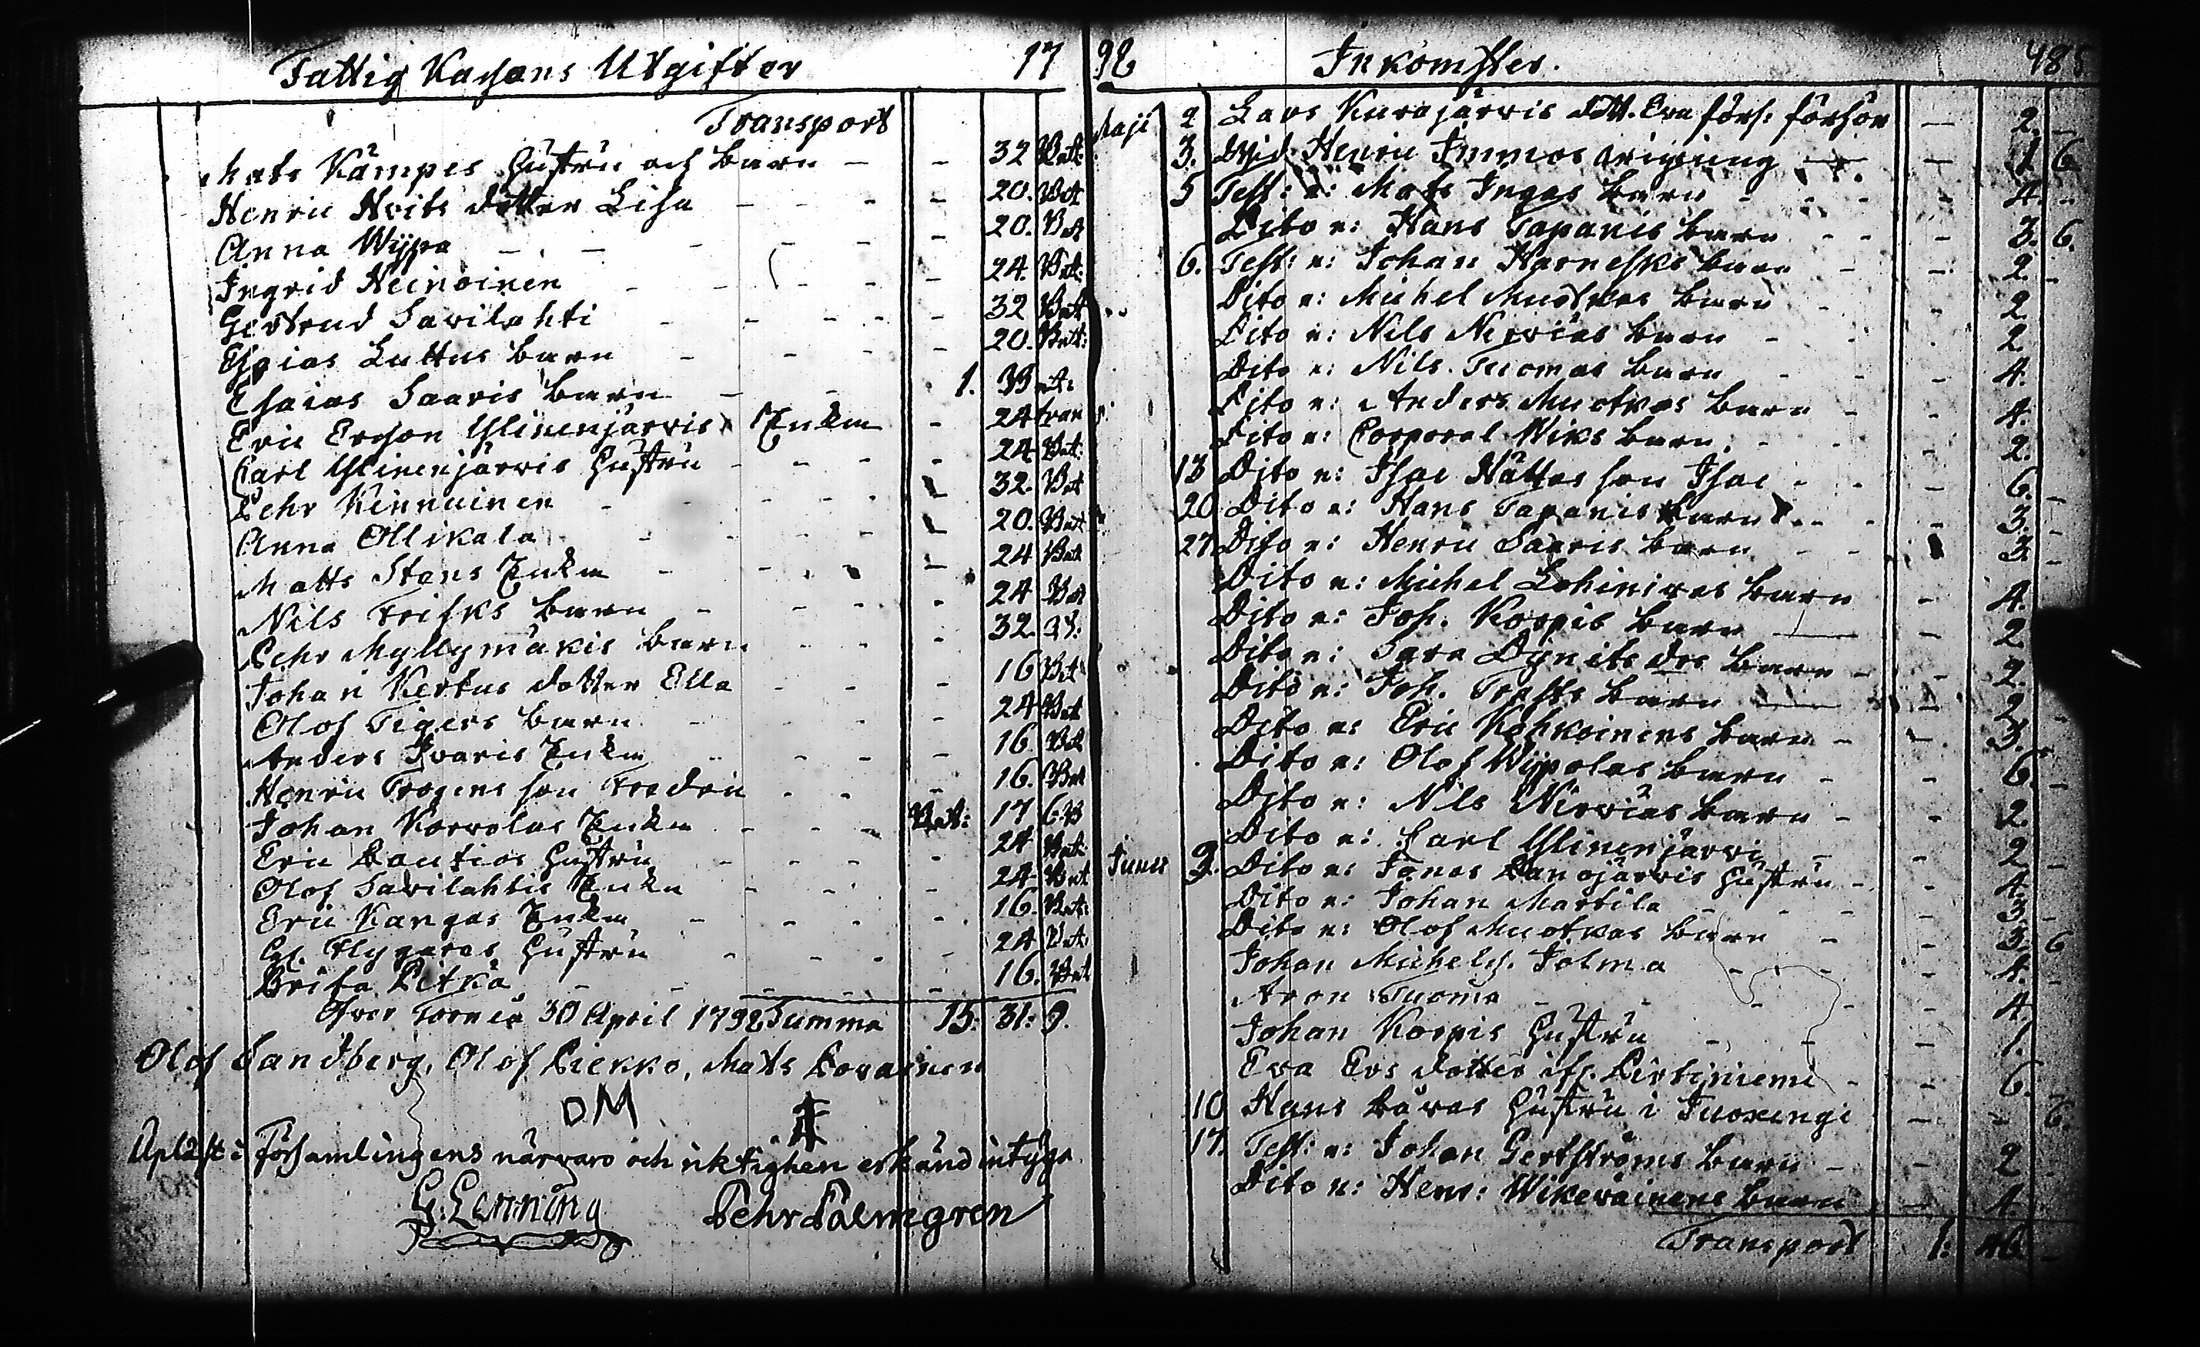 Fattig Kassans Utgifter 17
Transport
Mats Kämpes Hustru och barn - - 32 Bet:
Henric Hvits dotter Lisa - - - - 20. Bet
Anna Wijpa - - - - 20. Bet
Ingrid Heinoinen - - - - 24. Bet:
Gertrud Savilahti - - - - 32 Bet
Esaias Luttus barn - - - - 20. Bet:
Esaias Saaris barn - - 1. Bet:
Eric Ersson Ylinenjärvis Enka - 24
Carl Ylinenjärvis Hustru - - - - 24 Bet:
Pehr Keinuinen - - - - 32. Bet
Anna Ollikala - - - - 20. Bet
Matts Stans Enka - - - - 24 Bet
Nils Frisks barn - - - - 24 Bet
Pehr Myllymäkis barn - - - 32.
Johan Kertus dotter Ella - - - 16 Bet:
Olof Tigers barn - - - - 24 Bet
Anders Ivaris Enka - - - - 16 Bet
Henric Trogens son Fredric - - - 16. Bet
Johan Korvolas Enka - - - Bet: 17 6
Eric Lautios Hustru - - - - 24 Bet:
Olof Savilahtis Enka - - - - 24 Bet
Eric Kangas Enka - - - - 16. Bet:
Flygares Hustru - - - - 24 Bet:
Brita Pitkä - - - - 16. Bet
Öfver Torneå 30 April 1792 Summa 15: 31: 9.
Olof Sandberg, Olof Piekko, Mats Lovainen
DM
Upläst i Församlingens närvaro och riktigheten erkänd intyga
G. Lenning Pehr Palmgren
92 Inkomster. 485
Maji 2 Lars Kurajärvis dott. Eva förs: förhör - 2. -
3. Wid Henric Immos wigning - - 1. 6
5 Test: e: Mats Ingas barn - - - 4. -
Dito e: Hans Tapanis barn - - - 3. 6.
6. Test: e: Johan Harnesks barn - - 2 -
Dito e: Michel Muotkas barn - - 2
Dito e: Nils Niwias barn - - 2
Dito e: Nils Tuomas barn - - 4.
Dito e: Anders Muotkas barn - - 4.
Dito e: Corporal Wiks barn - - 2.
13 Dito e: Isac Hättas son Isac - - 6. -
20 Dito e: Hans Tapanis barn - - 3. -
27 Dito e: Henric Saaris barn - - 3. -
Dito e: Michel Lohinivas barn - 4.
Dito e: Joh. Korpis barn - - 2
Dito e: Sara barn - - 2.
Dito e: Joh. Trasts barn - - 2 -
Dito e: Eric Kohkoinens barn - - 3.
Dito e: Olof Wijpolas barn - - 6. -
Dito e: Nils Niwias barn - - 2.
Dito e: Carl Ylinenjärvi - 2 -
Junii 3. Dito e: Jonas Hustru - - 4
Dito e: Johan Martila - - - 3. -
Dito e: Olof Muotkas barn - - 3. 6
Johan Michels. Jolma - - - 4. -
Aron Tuoma - - - - 4.
Johan Korpis Hustru - - - 1.
Eva Ers dotter Pirtiniemi - - 6.
10 Hans Hustru i Tuoxengi - - 6.
17. Test: e: Johan Gertströms barn - - 2 -
Dito e: Henr: Wikeväinens barn - 4.
Transport 1: 46 -